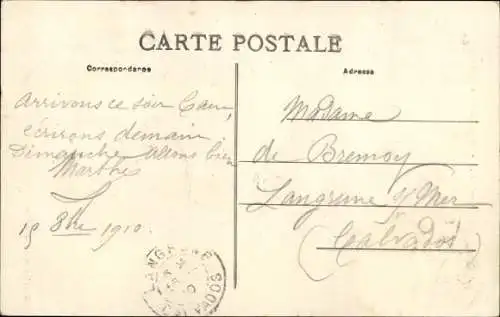 CARTE POSTALE
Correspondance
Adresse
Arrivons ce soir Caen,
écrirons demain
Dimanche Allons bien
Marthe
15 8bre 1910.
Madame
de Bremoy
Langrune s/ Mer
(Calvados)
LANGRUNE